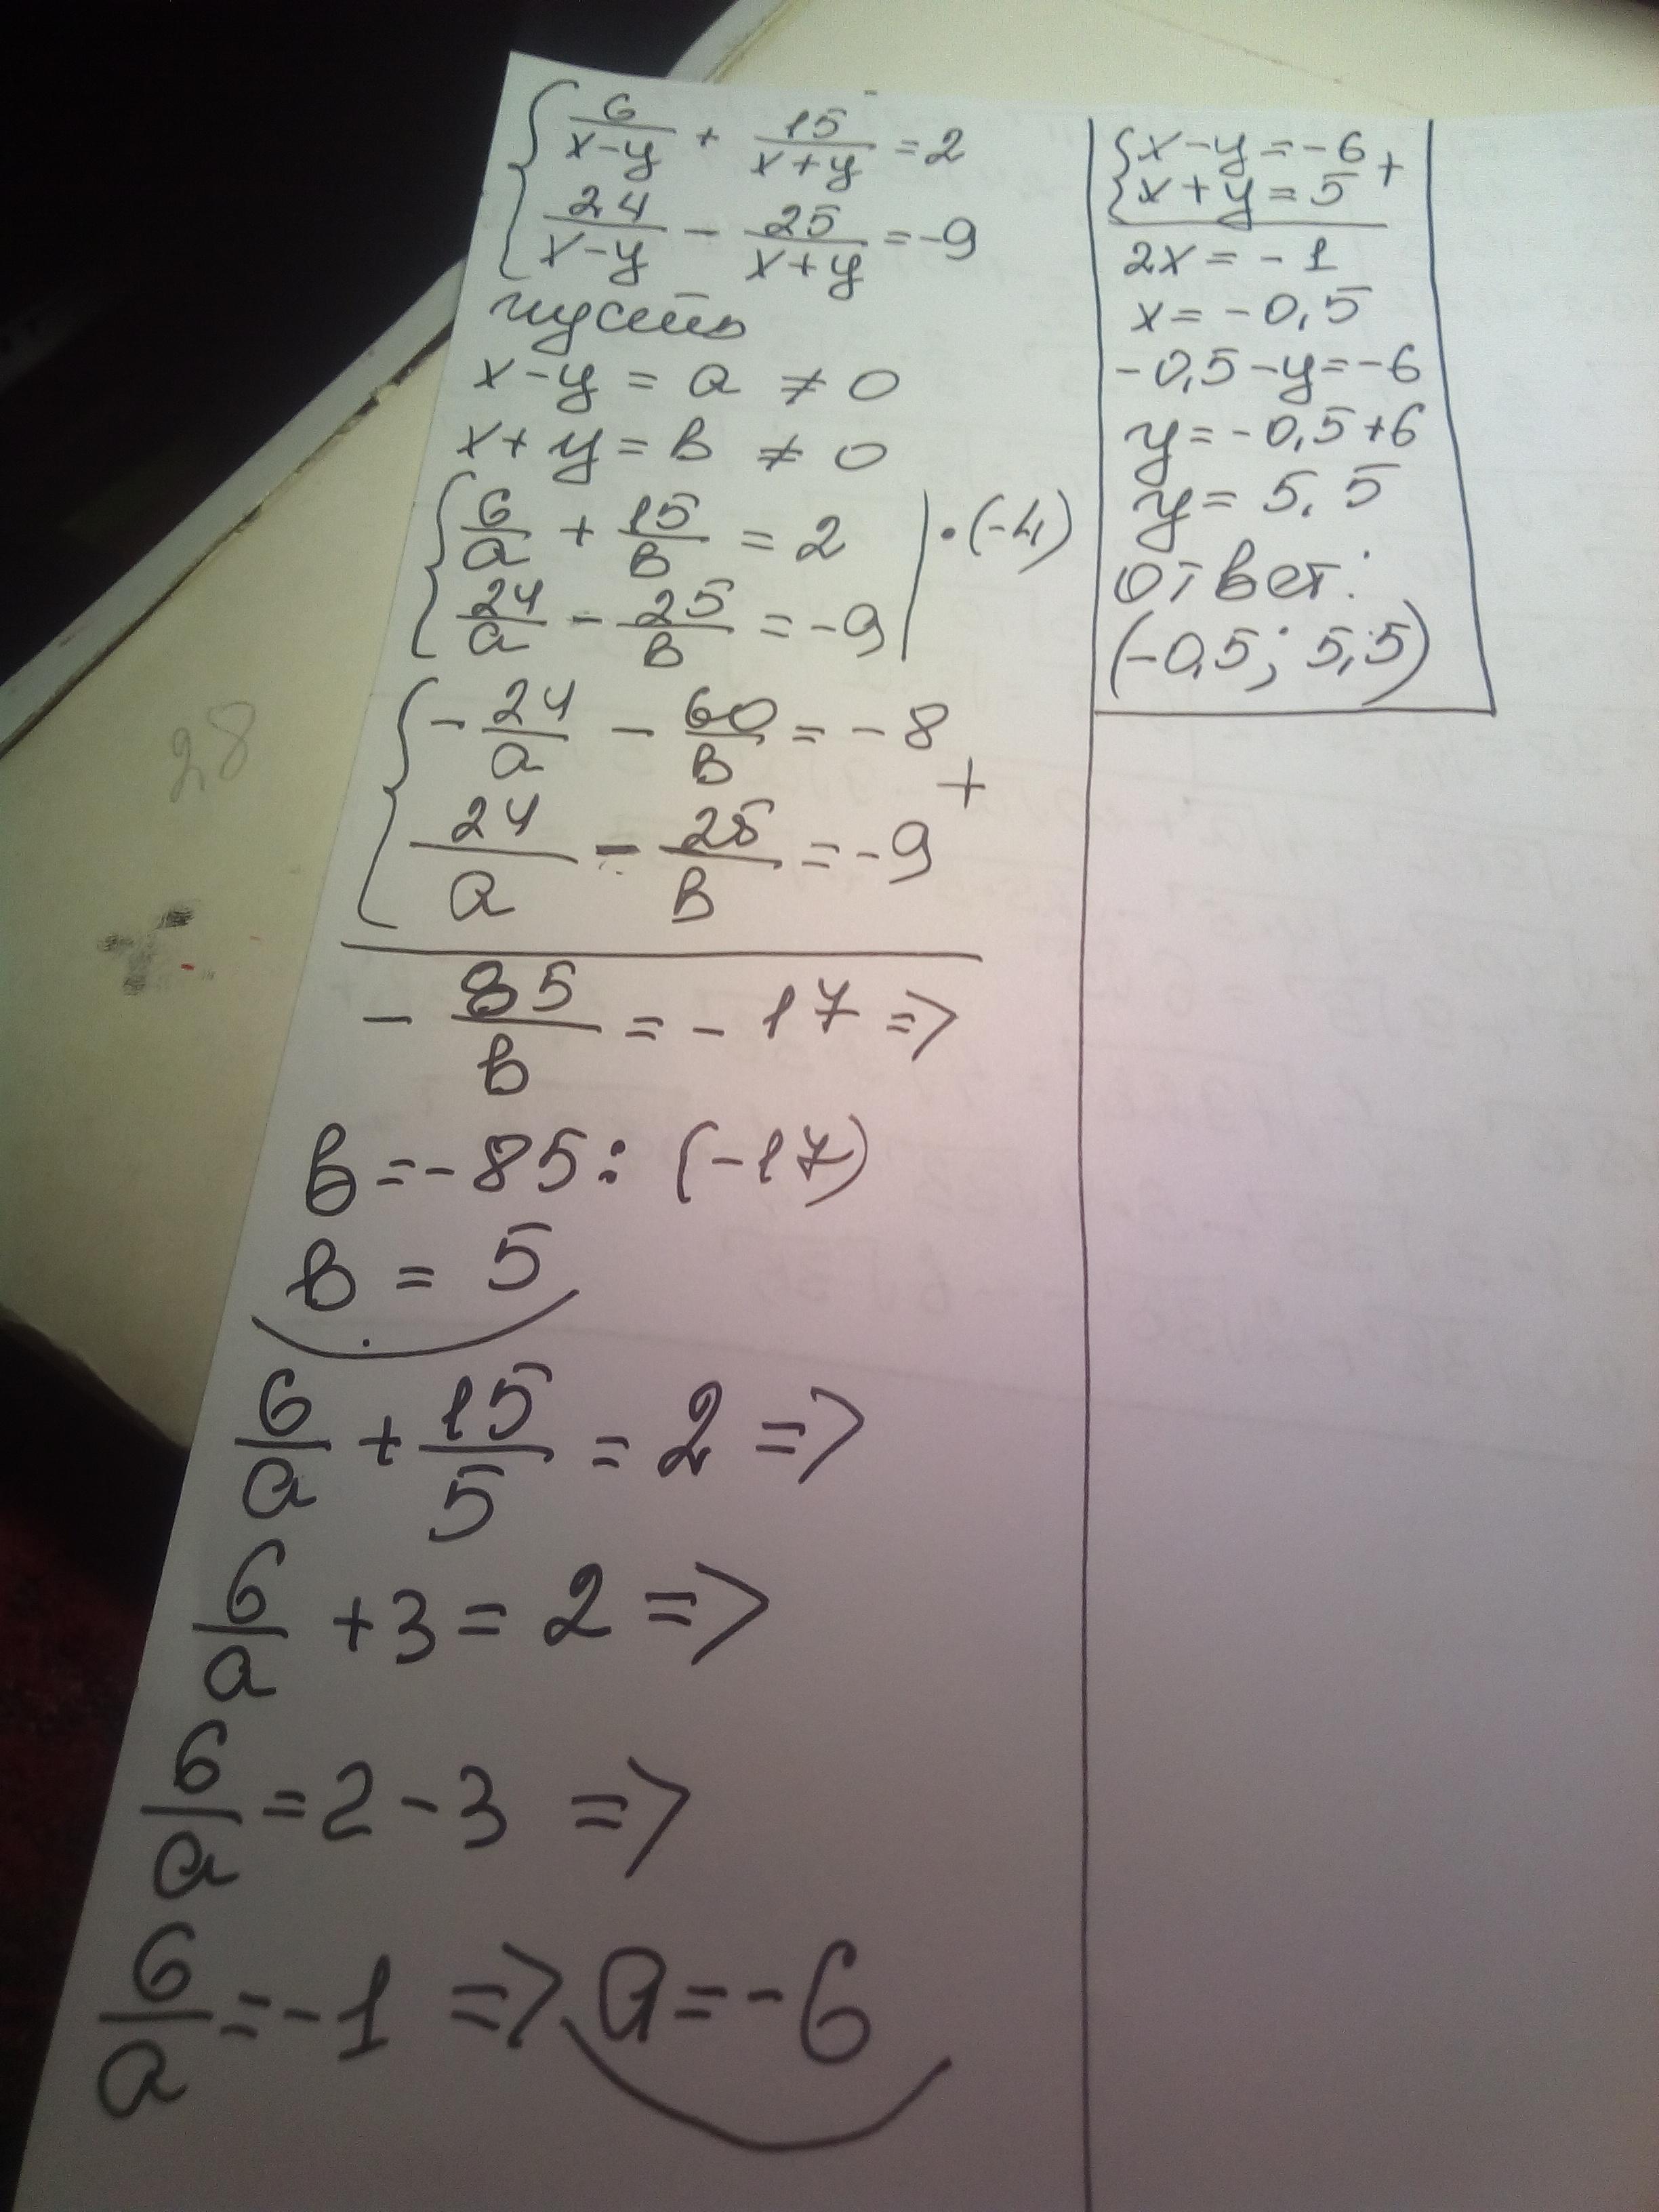 {6/(x-y) + 15/(x+y) = 2
24/(x-y) - 25/(x+y) = -9
пусть
x-y = a ≠ 0
x+y = в ≠ 0
{6/a + 15/в = 2 | · (-4)
24/a - 25/в = -9
{-24/a - 60/в = -8
+
24/a - 25/в = -9
-85/в = -17 =>
в = -85 : (-17)
в = 5
6/a + 15/5 = 2 =>
6/a + 3 = 2 =>
6/a = 2 - 3 =>
6/a = -1 => a = -6
{x-y = -6 +
x+y = 5
2x = -1
x = -0,5
-0,5-y = -6
y = -0,5+6
y = 5,5
ответ:
(-0,5; 5,5)
28